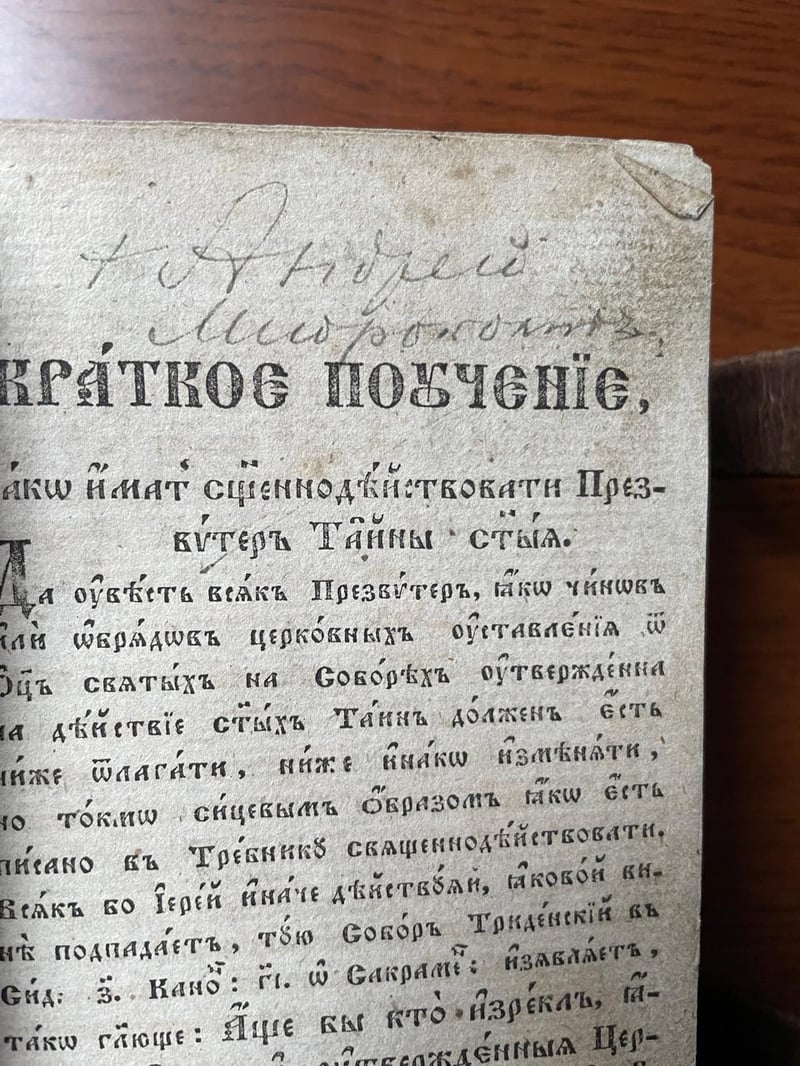 + Андрей
КРА́ТКОЕ ПОꙊЧЕНІЕ,
а́кѡ и҆́мать сщ҃еннодѣ́йствовати През-
вѵ́теръ Та̑йны ст҃ы́ѧ.
Да ѹ҆вѣ́сть всѧ́къ Презвѵ́теръ, ꙗ҆́кѡ чи́нѡвъ
и҆лѝ ѡ҆брѧ́дѡвъ церко́вныхъ ѹ҆ставле́нїѧ ѿ
Ѻц҃ъ свѧты́хъ на Собо́рѣхъ ѹ҆твержде́нна
на дѣ́йствїе ст҃ы́хъ Та́инъ до́лженъ є҆́сть
ни́же ѿлага́ти, ни́же и҆на́кѡ и҆змѣнѧ́ти,
но то́кмѡ си́цевымъ ѻ҆́бразомъ ꙗ҆́кѡ є҆́сть
пи́сано въ Тре́бникꙋ свѧщеннодѣ́йствовати.
Всѧ́къ бо І҆ере́й и҆на́че дѣ́йствꙋѧй, ꙗ҆ково́й ви-
нѣ̀ подпада́етъ, то́ю Собо́ръ Триде́нскїй въ
Сид: з҃. Кано́н: г҃і. ѡ҆ Сакраме́н: и҆з̾ѧвлѧ́етъ,
та́кѡ гл҃юще: А҆́ще бы кто̀ и҆зре́клъ, ꙗ҆́-
ѹ҆твержде́нныѧ Цер-